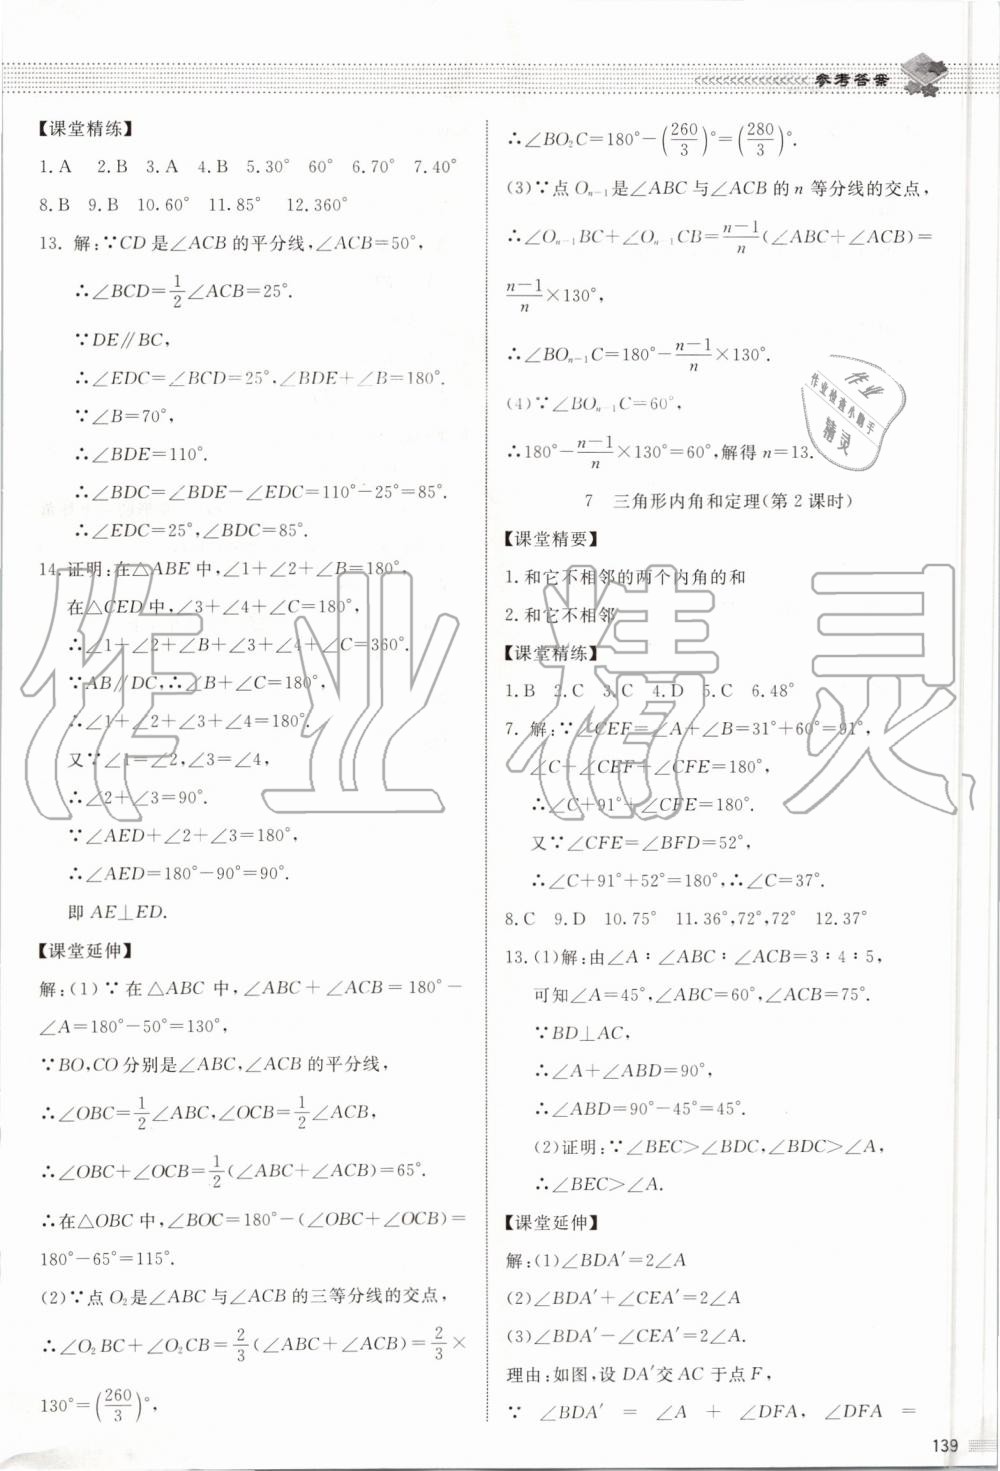 参考答案
【课堂精练】
1. A 2. B 3. A 4. B 5. 30° 60° 6. 70° 7. 40°
8. B 9. B 10. 60° 11. 85° 12. 360°
13. 解:∵CD是∠ACB的平分线,∠ACB=50°,
∴∠BCD=1/2∠ACB=25°.
∵DE∥BC,
∴∠EDC=∠BCD=25°,∠BDE+∠B=180°.
∵∠B=70°,
∴∠BDE=110°.
∴∠BDC=∠BDE-∠EDC=110°-25°=85°.
∴∠EDC=25°,∠BDC=85°.
14. 证明:在△ABE中,∠1+∠2+∠B=180°,
在△CED中,∠3+∠4+∠C=180°,
∴∠1+∠2+∠B+∠3+∠4+∠C=360°.
∵AB∥DC,∴∠B+∠C=180°,
∴∠1+∠2+∠3+∠4=180°.
又∵∠1=∠2,∠3=∠4,
∴∠2+∠3=90°.
∵∠AED+∠2+∠3=180°,
∴∠AED=180°-90°=90°.
即AE⊥ED.
【课堂延伸】
解:(1)∵在△ABC中,∠ABC+∠ACB=180°-
∠A=180°-50°=130°,
∵BO,CO分别是∠ABC,∠ACB的平分线,
∴∠OBC=1/2∠ABC,∠OCB=1/2∠ACB,
∴∠OBC+∠OCB=1/2(∠ABC+∠ACB)=65°.
∴在△OBC中,∠BOC=180°-(∠OBC+∠OCB)=
180°-65°=115°.
(2)∵点O₂是∠ABC与∠ACB的三等分线的交点,
∴∠O₂BC+∠O₂CB=2/3(∠ABC+∠ACB)=2/3×
130°=(260/3)°,
∴∠BO₂C=180°-(260/3)°=(280/3)°.
(3)∵点Oₙ₋₁是∠ABC与∠ACB的n等分线的交点,
∴∠Oₙ₋₁BC+∠Oₙ₋₁CB=(n-1)/n(∠ABC+∠ACB)=
(n-1)/n×130°,
∴∠BOₙ₋₁C=180°-(n-1)/n×130°.
(4)∵∠BOₙ₋₁C=60°,
∴180°-(n-1)/n×130°=60°,解得n=13.
7 三角形内角和定理(第2课时)
【课堂精要】
1. 和它不相邻的两个内角的和
2. 和它不相邻
【课堂精练】
1. B 2. C 3. C 4. D 5. C 6. 48°
7. 解:∵∠CEF=∠A+∠B=31°+60°=91°,
∠C+∠CEF+∠CFE=180°,
∴∠C+91°+∠CFE=180°.
又∵∠CFE=∠BFD=52°,
∴∠C+91°+52°=180°,∴∠C=37°.
8. C 9. D 10. 75° 11. 36°,72°,72° 12. 37°
13. (1)解:由∠A∶∠ABC∶∠ACB=3∶4∶5,
可知∠A=45°,∠ABC=60°,∠ACB=75°.
∵BD⊥AC,
∴∠A+∠ABD=90°,
∴∠ABD=90°-45°=45°.
(2)证明:∵∠BEC>∠BDC,∠BDC>∠A,
∴∠BEC>∠A.
【课堂延伸】
解:(1)∠BDA′=2∠A
(2)∠BDA′+∠CEA′=2∠A
(3)∠BDA′-∠CEA′=2∠A.
理由:如图,设DA′交AC于点F,
∵ ∠BDA′ = ∠A + ∠DFA, ∠DFA =
139
作业
作业检查小助手
精灵
作业精灵